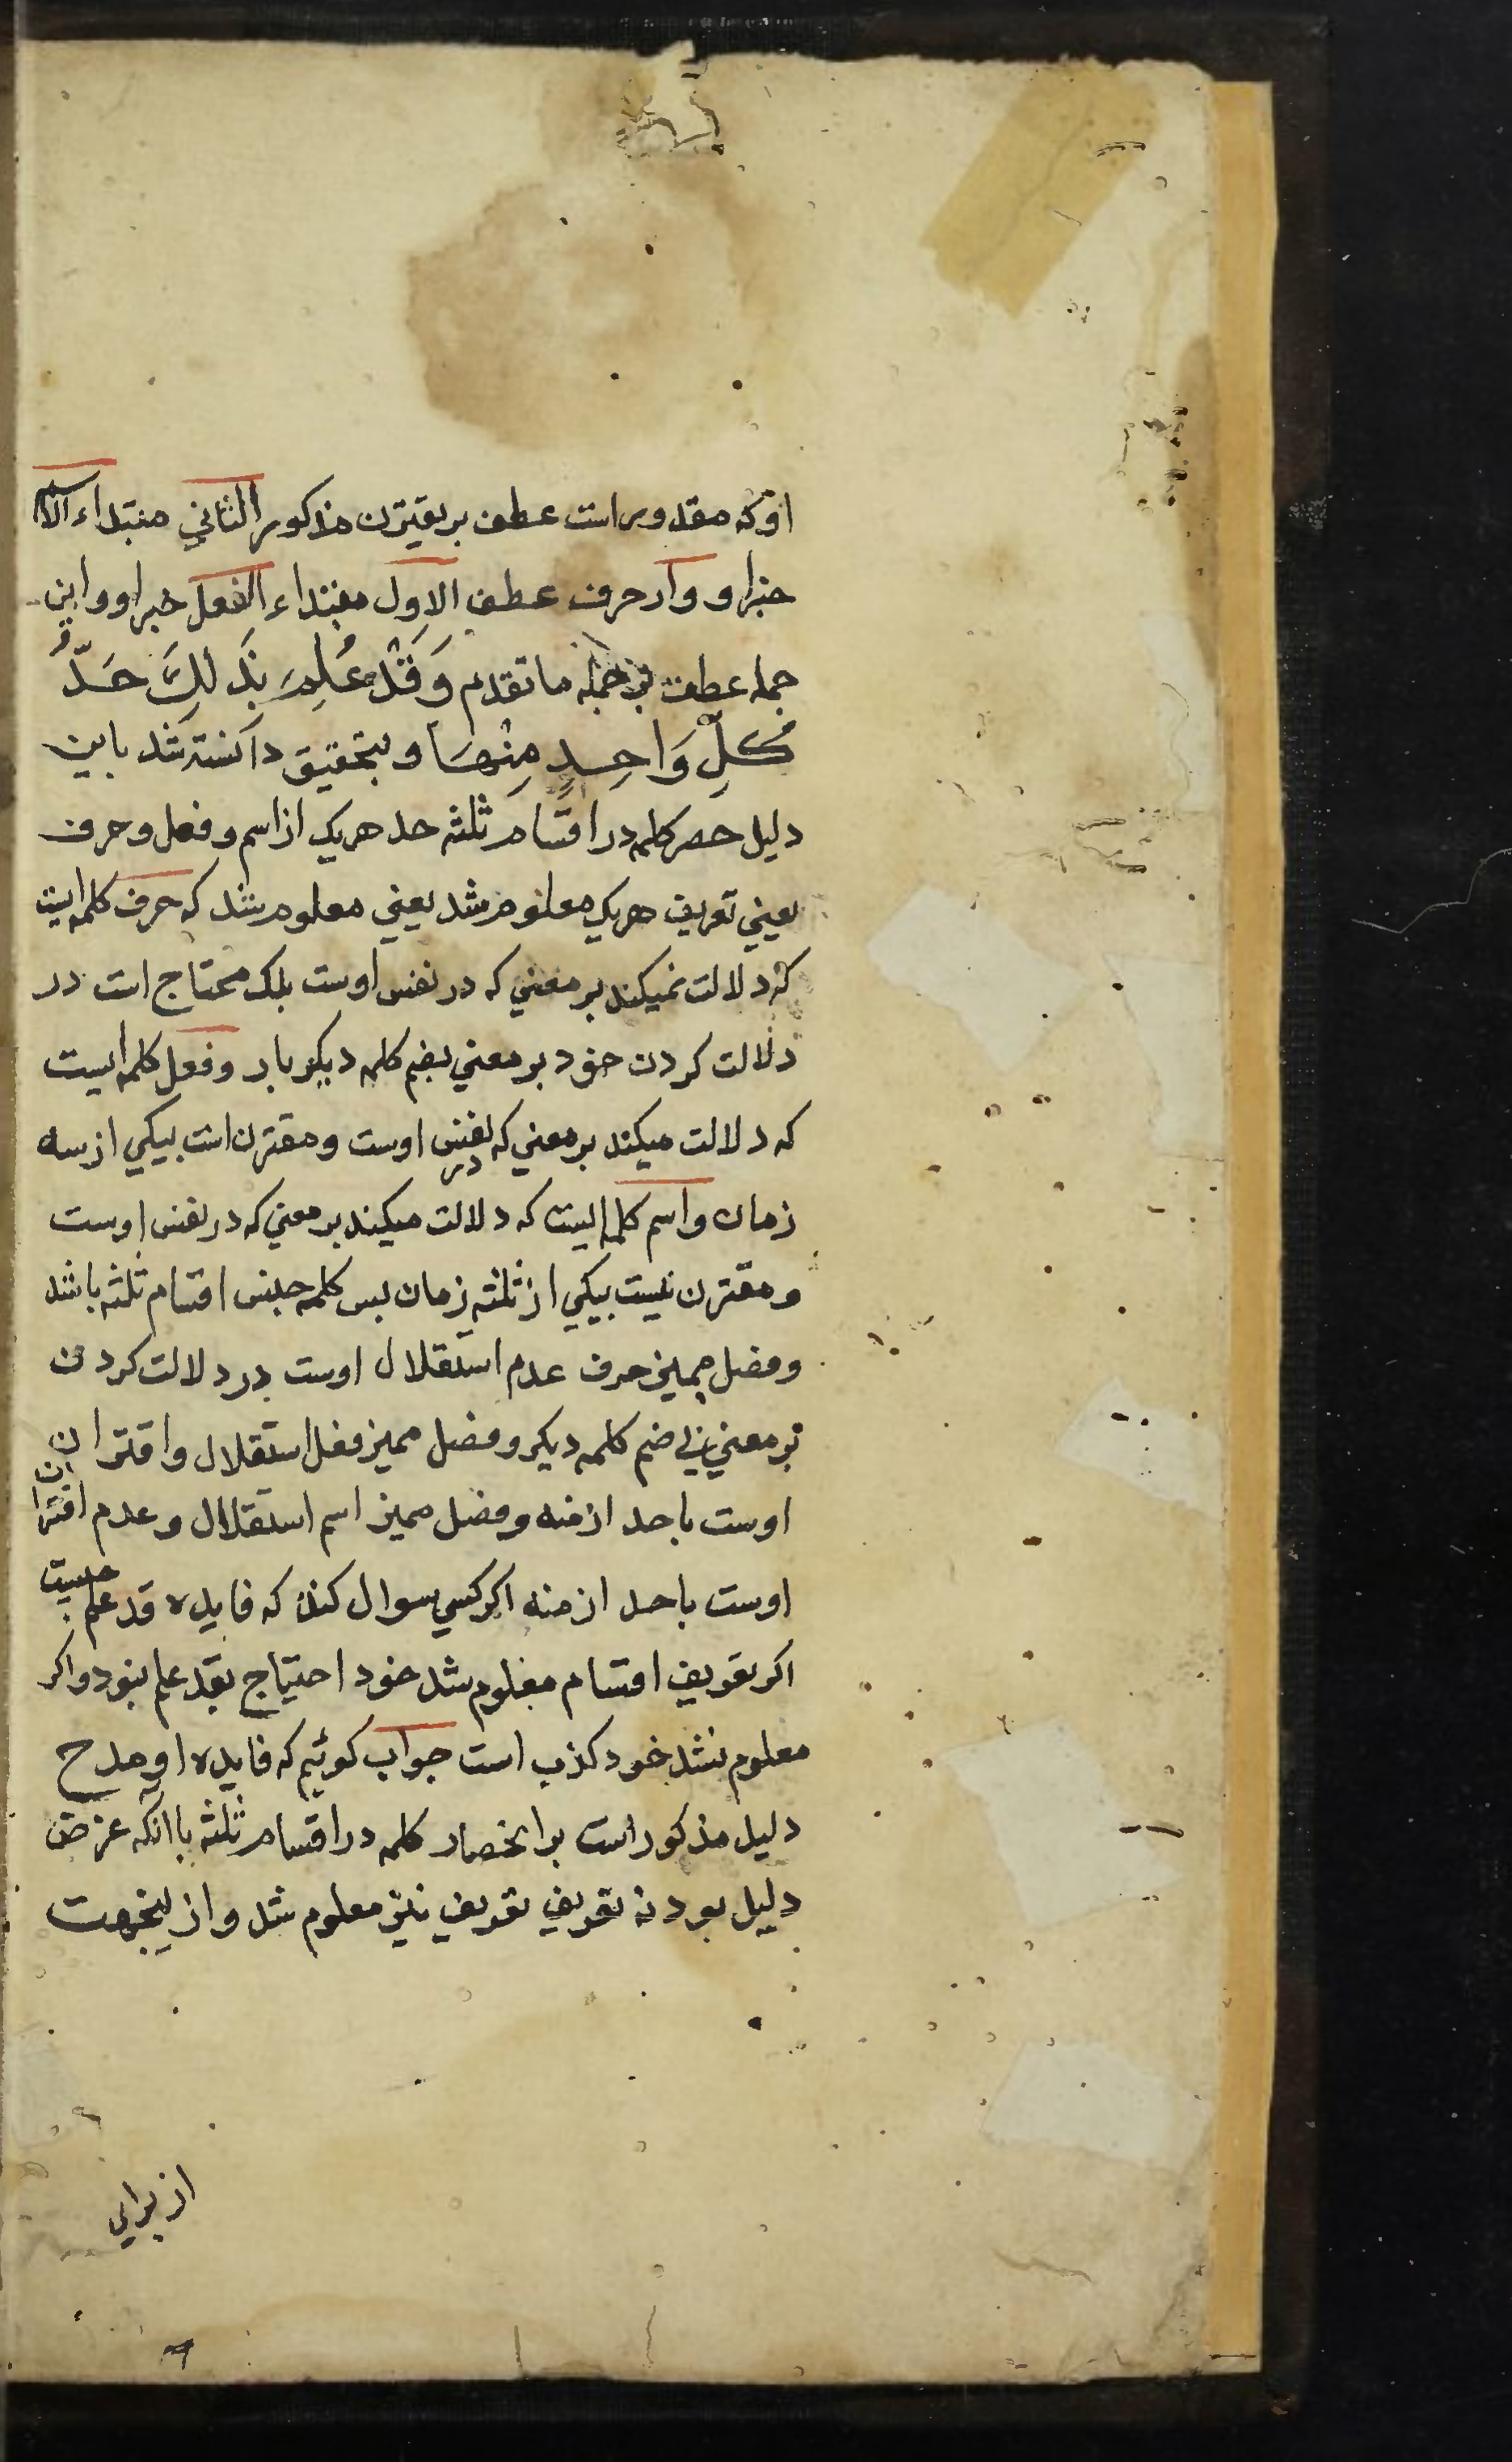 اوکه مقدور است عطف بر یقترن مذکور الثاني مبتداء الاسم
خبر او و واو حرف عطف الاول مبتداء الفعل خبر او و این
جمله عطف بر جمله ما تقدم وَقَدْ عُلِمَ بِذَلِكَ حَدُّ
كُلِّ وَاحِدٍ مِنْهَا و بتحقیق دانسته شد باین
دلیل حصر کلمه در اقسام ثلثه حد هریک از اسم و فعل و حرف
یعني تعریف هریک معلوم شد یعني معلوم شد که حرف کلمه ایست
که دلالت نمیکند بر معني که در نفس اوست بلک محتاج است در
دلالت کردن خود بر معني بضم کلمه دیکر باو و فعل کلمه ایست
که دلالت میکند بر معني که در نفس اوست و مقترن است بیکي از سه
زمان و اسم کلمه ایست که دلالت میکند بر معني که در نفس اوست
و مقترن نیست بیکي از ثلثه زمان بس کلمه جنس اقسام ثلثه باشد
و فصل ممیز حرف عدم استقلال اوست در دلالت کردن
بر معني بي ضم کلمه دیکر و فصل ممیز فعل استقلال و اقتران
اوست باحد ازمنه و فصل ممیز اسم استقلال و عدم اقتران
اوست باحد ازمنه اکر کسي سوال کند که فایده قد علم چیست
اکر تعریف اقسام معلوم شد خود احتیاج بقد علم نبود و اکر
معلوم نشد خود کذب است جواب کوئیم که فایده او مدح
دلیل مذکور است بر انحصار کلمه در اقسام ثلثه با آنکه غرض
دلیل بود نه تعریف تعریف نیز معلوم شد و ازینجهت
از براي